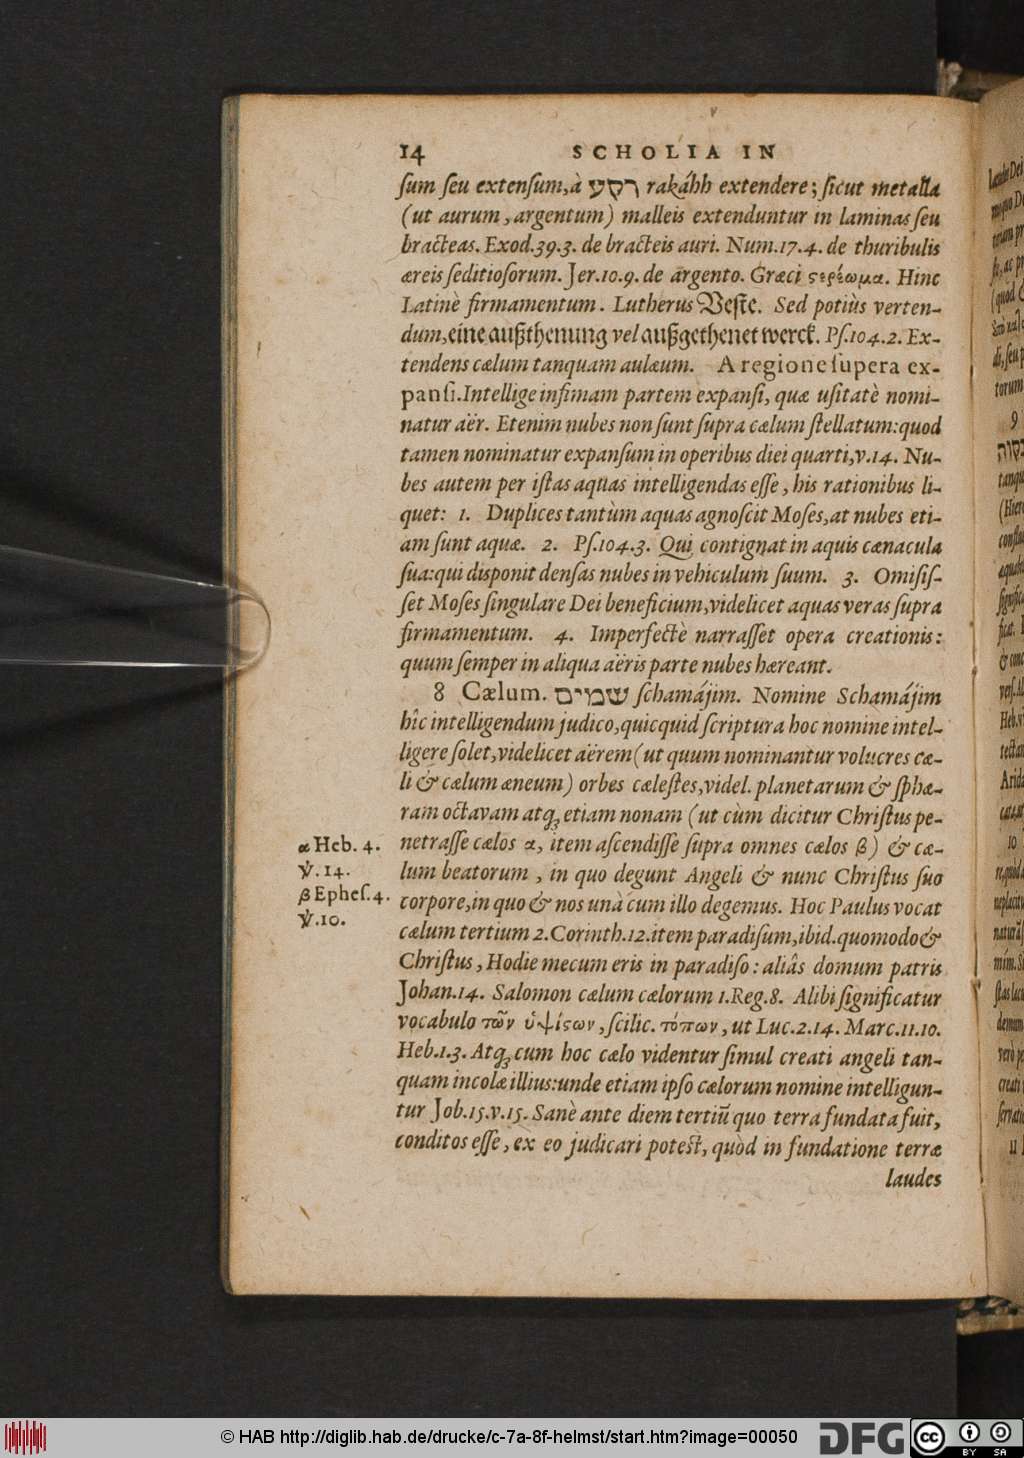 14 SCHOLIA IN
ſum ſeu extenſum, à רקע rakáhh extendere; ſicut metalla
(ut aurum, argentum) malleis extenduntur in laminas ſeu
bracteas. Exod.39.3. de bracteis auri. Num.17.4. de thuribulis
æreis ſeditioſorum. Jer.10.9. de argento. Græci ςερέωμα. Hinc
Latinè firmamentum. Lutherus Veſte. Sed potiùs verten-
dum, eine außthenung vel außgethenet werck. Pſ.104.2. Ex-
tendens cælum tanquam aulæum. A regione ſupera ex-
panſi. Intellige infimam partem expanſi, quæ uſitatè nomi-
natur aër. Etenim nubes non ſunt ſupra cælum ſtellatum: quod
tamen nominatur expanſum in operibus diei quarti, v.14. Nu-
bes autem per iſtas aquas intelligendas eſſe, his rationibus li-
quet: 1. Duplices tantùm aquas agnoſcit Moſes, at nubes eti-
am ſunt aquæ. 2. Pſ.104.3. Qui contignat in aquis cænacula
ſua: qui diſponit denſas nubes in vehiculum ſuum. 3. Omiſiſ-
ſet Moſes ſingulare Dei beneficium, videlicet aquas veras ſupra
firmamentum. 4. Imperfectè narraſſet opera creationis:
quum ſemper in aliqua aëris parte nubes hæreant.
8 Cælum. שמים ſchamájim. Nomine Schamájim
hîc intelligendum judico, quicquid ſcriptura hoc nomine intel-
ligere ſolet, videlicet aërem (ut quum nominantur volucres cæ-
li & cælum æneum) orbes cæleſtes, videl. planetarum & ſphæ-
ram octavam atq; etiam nonam (ut cùm dicitur Chriſtus pe-
netraſſe cælos α, item aſcendiſſe ſupra omnes cælos β) & cæ-
lum beatorum, in quo degunt Angeli & nunc Chriſtus ſuo
corpore, in quo & nos unà cum illo degemus. Hoc Paulus vocat
cælum tertium 2.Corinth.12. item paradiſum, ibid. quomodo &
Chriſtus, Hodie mecum eris in paradiſo: aliâs domum patris
Johan.14. Salomon cælum cælorum 1.Reg.8. Alibi ſignificatur
vocabulo τῶν ὑψίςων, ſcilic. τόπων, ut Luc.2.14. Marc.11.10.
Heb.1.3. Atq; cum hoc cælo videntur ſimul creati angeli tan-
quam incolæ illius: unde etiam ipſo cælorum nomine intelligun-
tur Job.15.v.15. Sanè ante diem tertiũ quo terra fundata fuit,
conditos eſſe, ex eo judicari poteſt, quòd in fundatione terræ
laudes
α Heb. 4.
℣. 14.
β Epheſ. 4.
℣. 10.
© HAB http://diglib.hab.de/drucke/c-7a-8f-helmst/start.htm?image=00050
DFG
cc BY SA